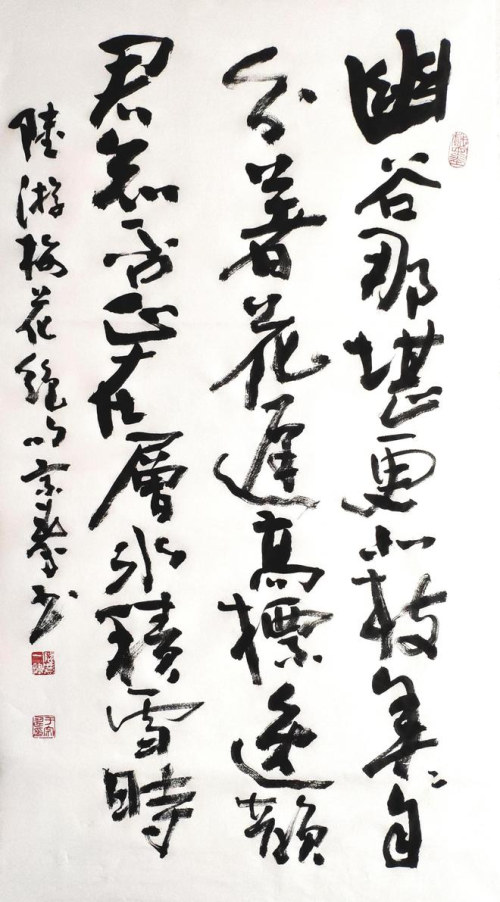 幽谷那堪更北枝年々自
分著花遲高標逸韻
君知否正在層冰積雪時
陸游梅花絕句書